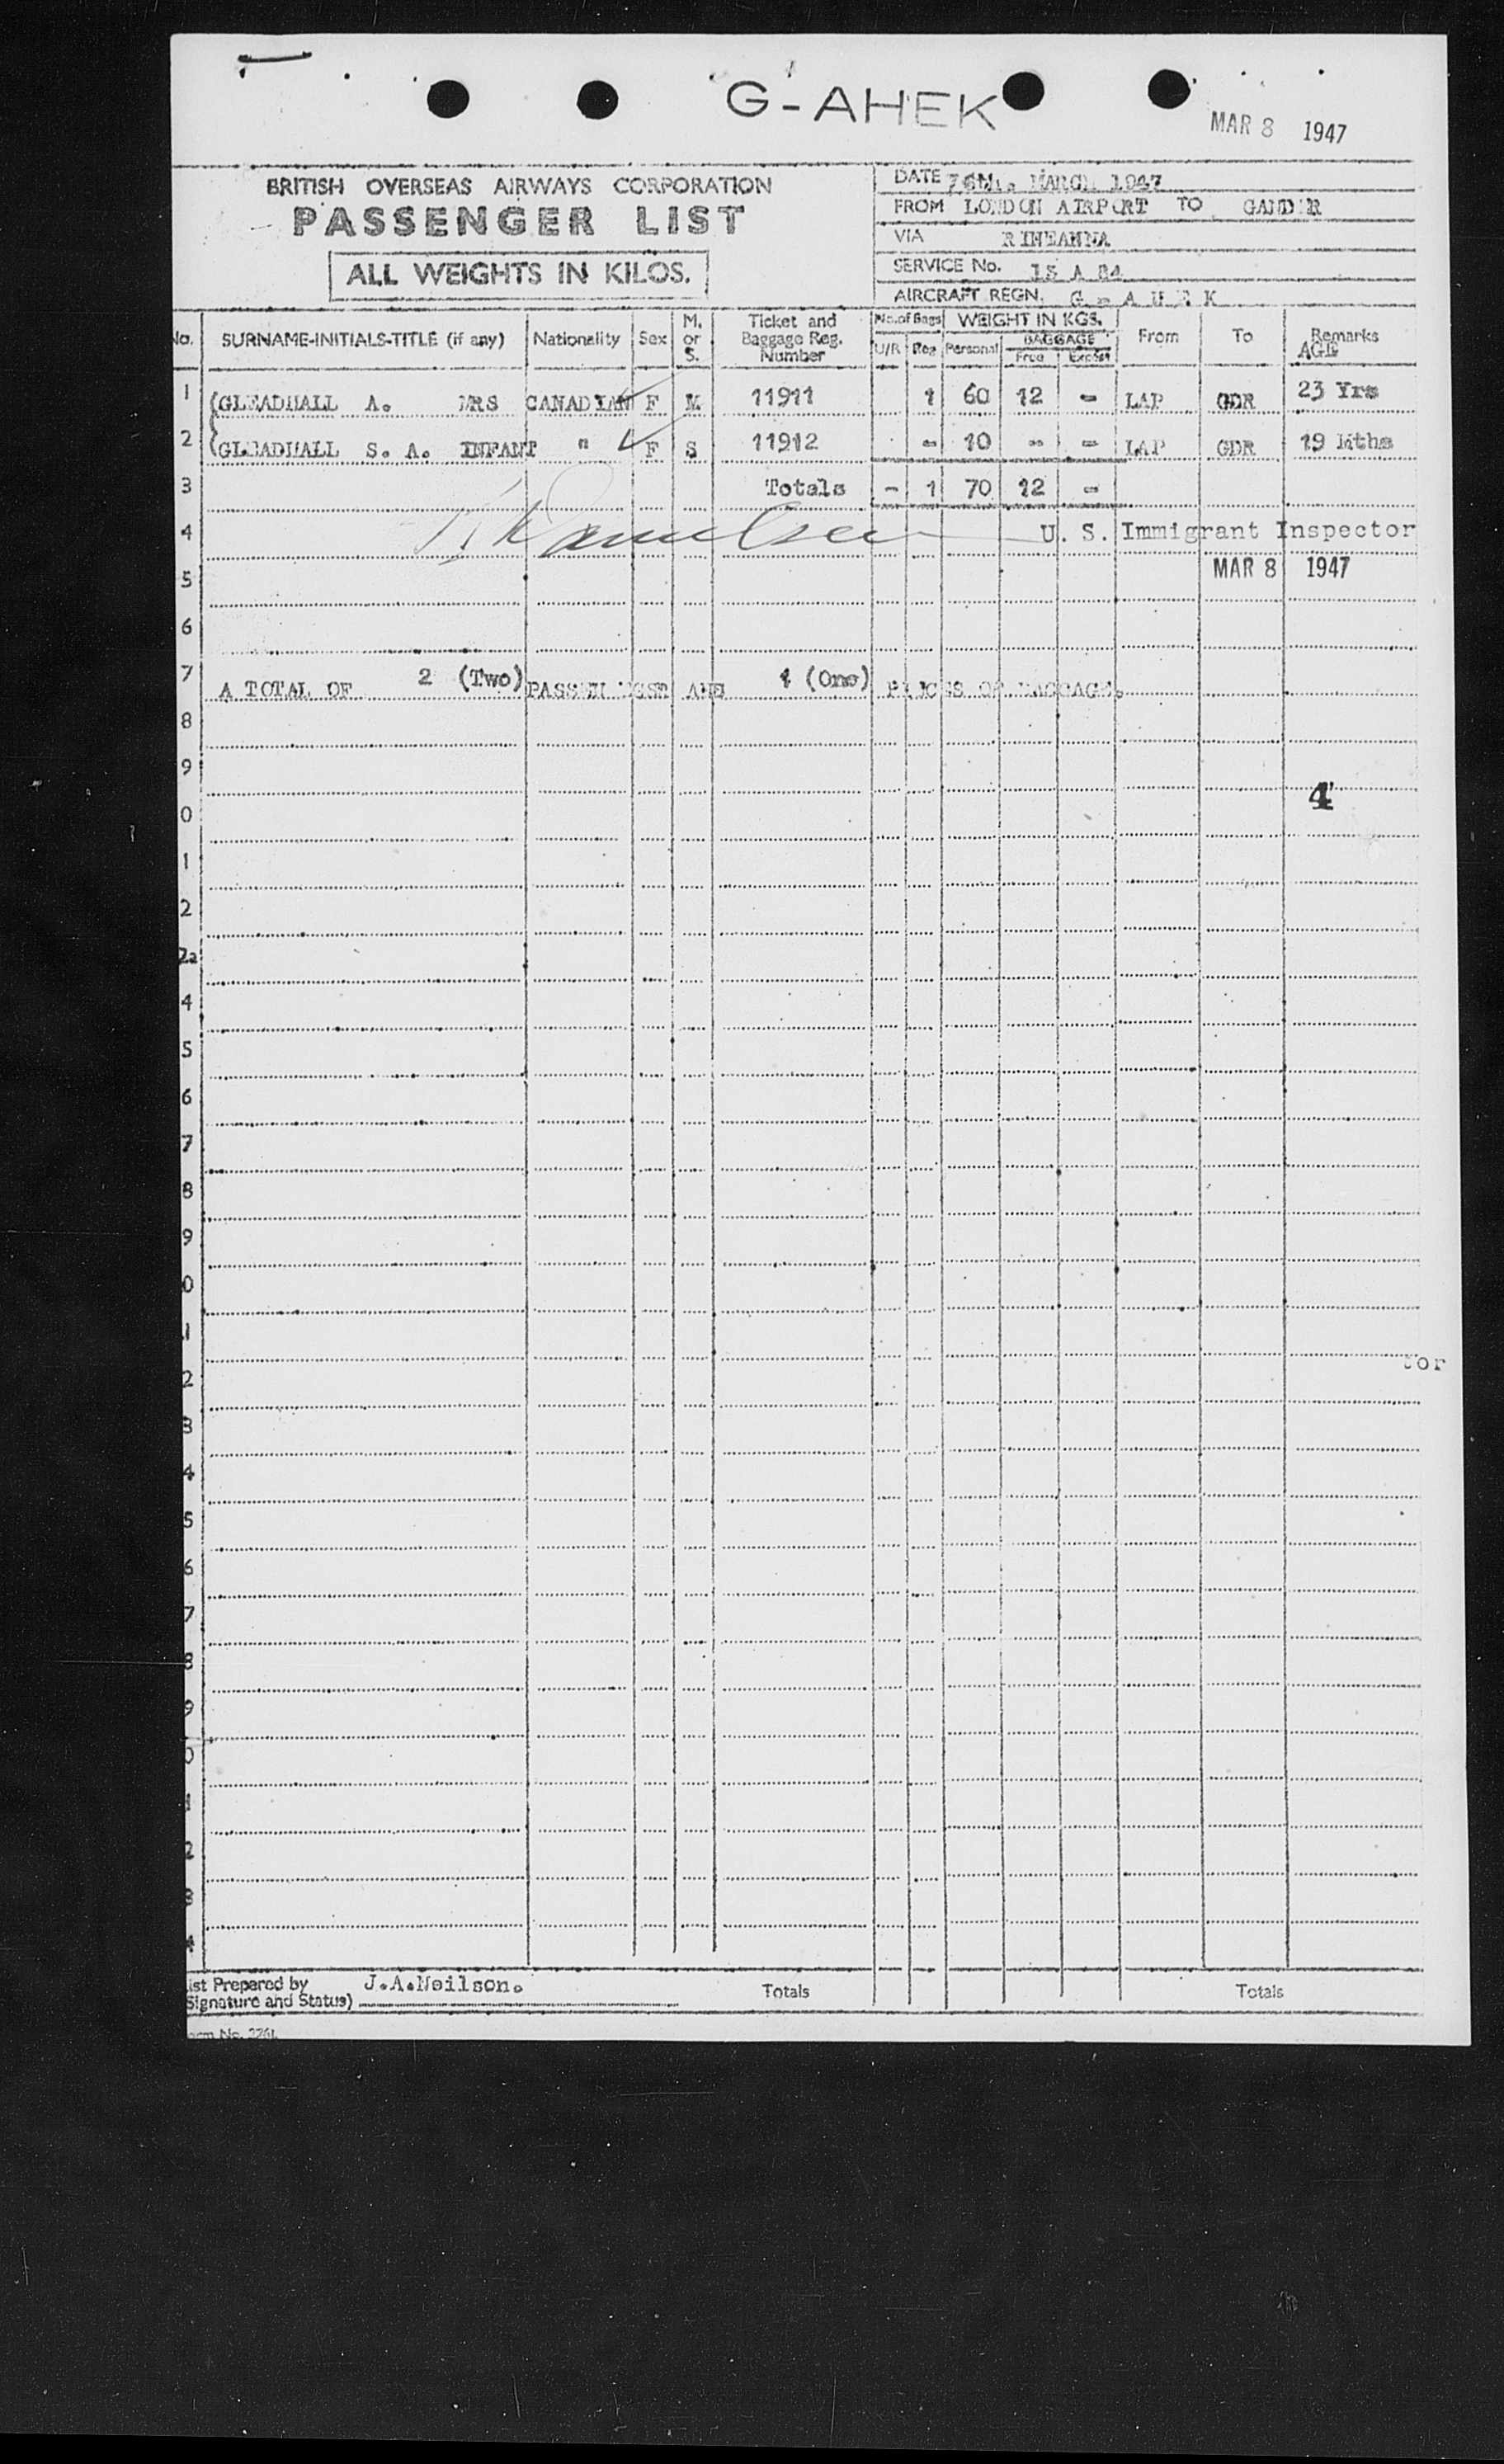 G-AHEK
MAR 8 1947
BRITISH OVERSEAS AIRWAYS CORPORATION
PASSENGER LIST
ALL WEIGHTS IN KILOS.
DATE 7th. MARCH 1947
FROM LONDON AIRPORT TO GANDER
VIA RINEANNA
SERVICE No. 15 A 84
AIRCRAFT REGN. G - A H E K
No. SURNAME-INITIALS-TITLE (if any) Nationality Sex M. or S. Ticket and Baggage Reg. Number No. of Bags U/R Reg WEIGHT IN KGS. Personal BAGGAGE Free Excess From To Remarks
AGE
1 (GLEADHALL A. MRS CANADIAN F M 11911 1 60 12 - LAP GDR 23 Yrs
2 (GLEADHALL S. A. INFANT " F S 11912 - 10 - - LAP GDR 19 Mths
3 Totals - 1 70 12 -
4 U. S. Immigrant Inspector
5 MAR 8 1947
6
7 A TOTAL OF 2 (Two) PASSENGERS AND 1 (One) PIECES OF BAGGAGE.
8
9
4
0
1
2
2a
4
5
6
7
8
9
0
1
tor
2
3
4
5
6
7
8
9
0
1
2
3
4
ist Prepared by J.A.Neilson.
Signature and Status)
Totals Totals
orm No. 276L